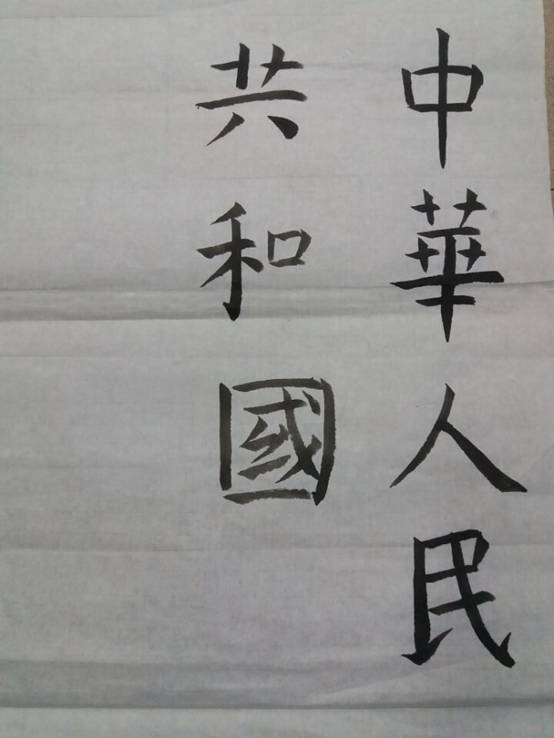 中華人民
共和國